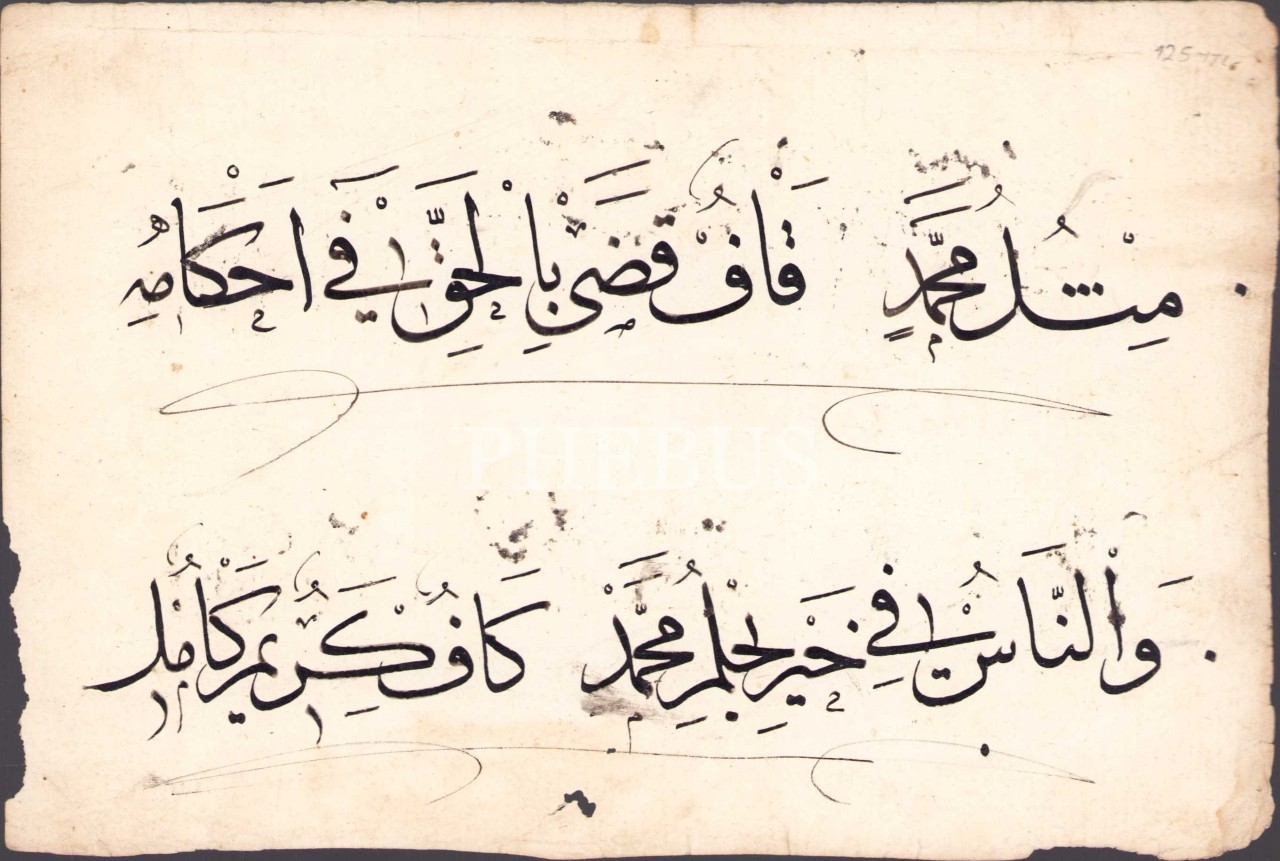 125
مِثْلُ مُحَمَّدٍ قَافٌ قَضَى بِالْحَقِّ فِي اَحْكَامِهِ
PHEBUS
وَالنَّاسُ فِي خَيْرٍ بِحِلْمِ مُحَمَّدْ كَافٌ كَرِيمٌ كَامِلٌ